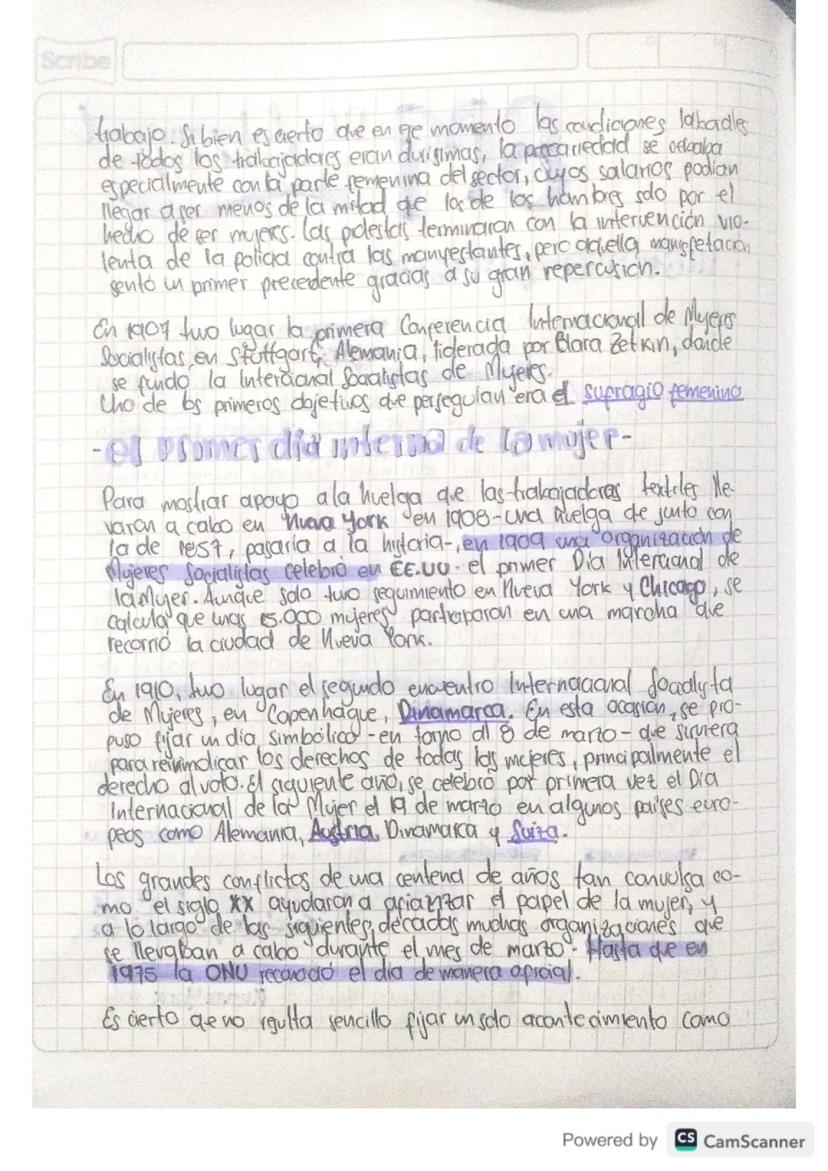 Scribe
trabajo. Si bien es cierto que en ese momento las condiciones laborales
de todos los trabajadores eran durísimas, la precariedad se cebaba
especialmente con la parte femenina del sector, cuyos salarios podian
llegar a ser menos de la mitad que los de los hombres solo por el
hecho de ser mujers. Las protestas terminaron con la intervención vio-
lenta de la policia contra las manifestantes, pero aquella manifetación
sentó un primer precedente gracias a su gran repercusion.
En 1907 tuvo lugar la primera Conferencia Internacional de Mujeres
Socialistas, en Stuttgart, Alemania, liderada por Clara Zetkin, donde
se fundo la Intercional Socialistas de Mujeres.
Uno de los primeros objetivos que perseguian era el sufragio femenino
-el primer dia interna de la mujer-
Para mostrar apoyo a la huelga que las trabajadoras textiles lle-
varan a cabo en Nueva York en 1908-una huelga de junto con
la de 1857, pasaría a la historia-, en 1909 una organización de
Mujeres Socialistas celebró en EE.UU. el primer Dia Intercional de
la Mujer. Aunque solo tuvo seguimiento en Nueva York y Chicago, se
calcula que unas 15.000 mujeres participaron en una marcha que
recorrió la ciudad de Nueva York.
En 1910, tuvo lugar el segundo encuentro Internacional Socialista
de Mujeres, en Copenhague, Dinamarca. En esta ocasión, se pro-
puso fijar un día simbólico -en torno al 8 de marzo- que sirviera
para reivindicar los derechos de todas las mujeres, principalmente el
derecho al voto. El siguiente año, se celebró por primera vez el Dia
Internacional de la Mujer el 19 de marzo en algunos países euro-
peos como Alemania, Austria, Dinamarca y Suiza.
Los grandes conflictos de una centena de años tan convulsa co-
mo el siglo XX ayudaron a afianzar el papel de la mujer, y
a lo largo de las siguientes décadas muchas organizaciones que
se llevaban a cabo durante el mes de marzo. Hasta que en
1975 la ONU reconoció el dia de manera oficial.
Es cierto que no resulta sencillo fijar un solo acontecimiento como
Powered by CS CamScanner